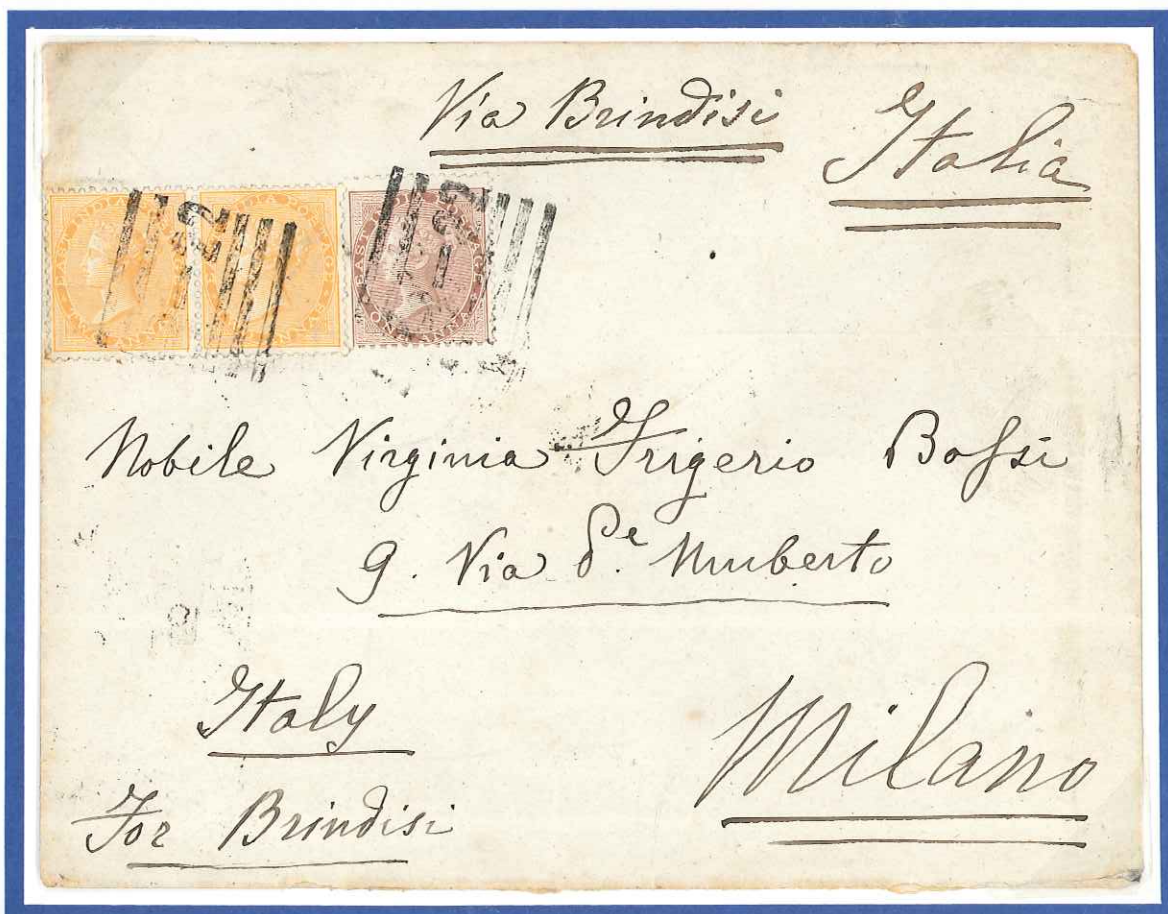 Via Brindisi
Italia
EAST INDIA
ONE ANNA
Nobile Virginia Frigerio Bossi
9. Via P.e Umberto
Italy
Milano
For Brindisi